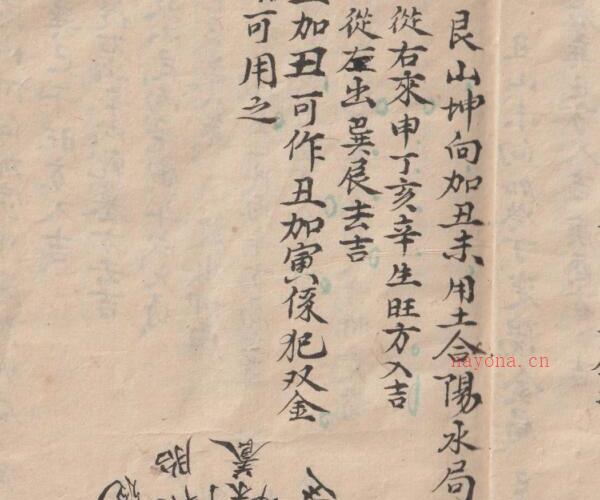 艮山坤向加丑未用土合陽水局
從右來申丁亥辛生旺方入吉
從左出巽辰去吉
加丑可作丑加寅係犯双金
可用之
養
胎
nayona.cn